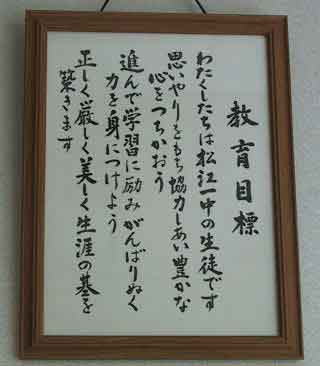 教育目標
わたくしたちは松江一中の生徒です
思いやりをもち協力しあい豊かな
心をつちかおう
進んで学習に励みがんばりぬく
力を身につけよう
正しく厳しく美しく生涯の基を
築きます